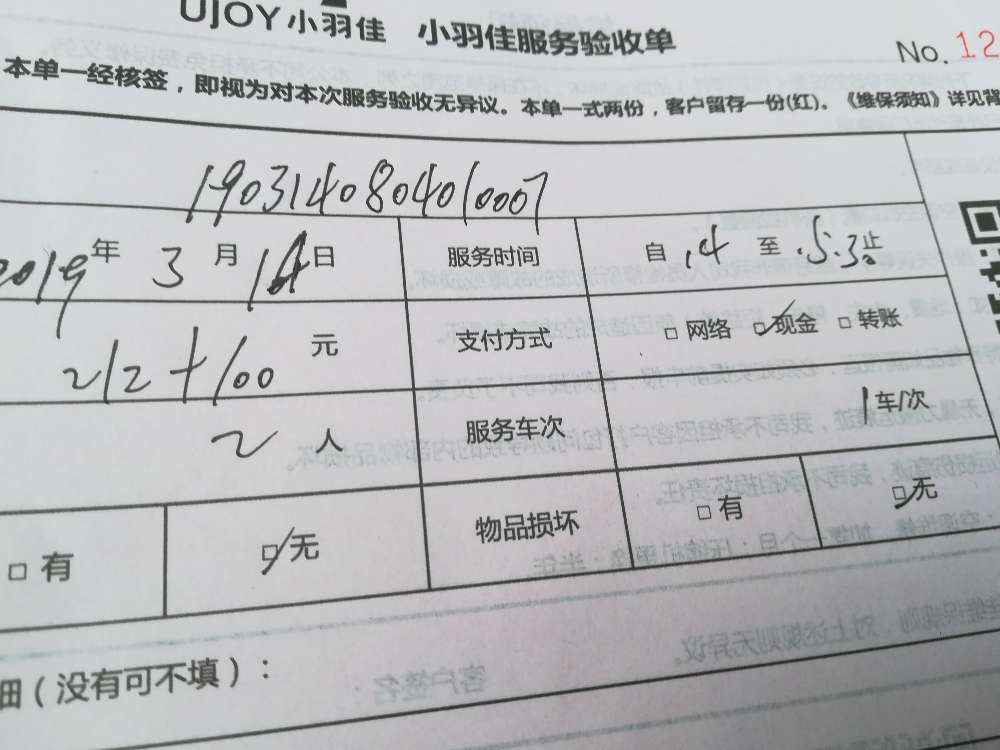 UJOY小羽佳 小羽佳服务验收单
No. 12
本单一经核签，即视为对本次服务验收无异议。本单一式两份，客户留存一份(红)。《维保须知》详见背
1903140804010007
2019年 3 月 14 日 服务时间 自 .4 至 .5.3 止
212+100 元 支付方式 □ 网络 ☑ 现金 □ 转账
2 人 服务车次 1 车/次
□ 有 ☑ 无 物品损坏 □ 有 ☑ 无
细（没有可不填）：